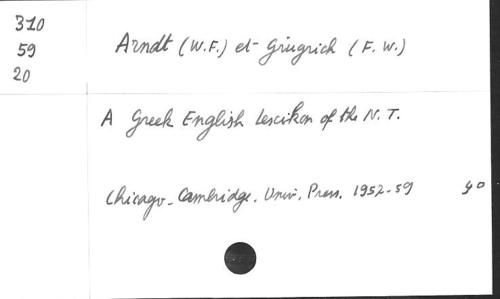 310
59
20
Arndt (W.F.) et Giugrich (F. W.)
A Greek English Lescikon of the N. T.
Chicago - Cambridge. Univ. Press. 1952-59 4°